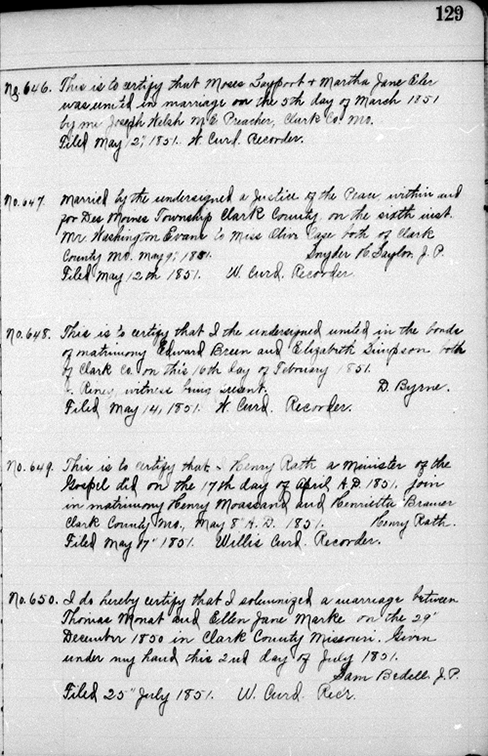 129
No. 646. This is to certify that Moses Layport + Martha Jane Eler
was united in marriage on the 5th day of March 1851
by me Joseph Welsh M.E. Preacher, Clark Co. Mo.
Filed May 12, 1851. W. Curd. Recorder.
No. 647. Married by the undersigned a Justice of the Peace within and
for Des Moines Township Clark County on the sixth inst.
Mr. Washington Evans to Miss Olive Case both of Clark
County Mo. May 9, 1851. Snyder H. Saylor J.P.
Filed May 12th 1851. W. Curd. Recorder
No. 648. This is to certify that I the undersigned united in the bonds
of matrimony Edward Breen and Elizabeth Simpson both
of Clark Co. on this 16th day of February 1851.
Riney, witness being present. D. Byrne.
Filed May 14, 1851. W. Curd. Recorder.
No. 649. This is to certify that I Henry Rath a Minister of the
Gospel did on the 17th day of April A.D. 1851. join
in matrimony Henry Moassand and Henrietta Bramer
Clark County Mo., May 8" A.D. 1851. Henry Rath.
Filed May 17" 1851. Willis Curd. Recorder.
No. 650. I do hereby certify that I solemnized a marriage between
Thomas Monat and Ellen Jane Marke on the 29"
December 1850 in Clark County Missouri. Given
under my hand this 2nd day of July 1851.
Sam Bedell J.P.
Filed 25" July 1851. W. Curd. Recr.